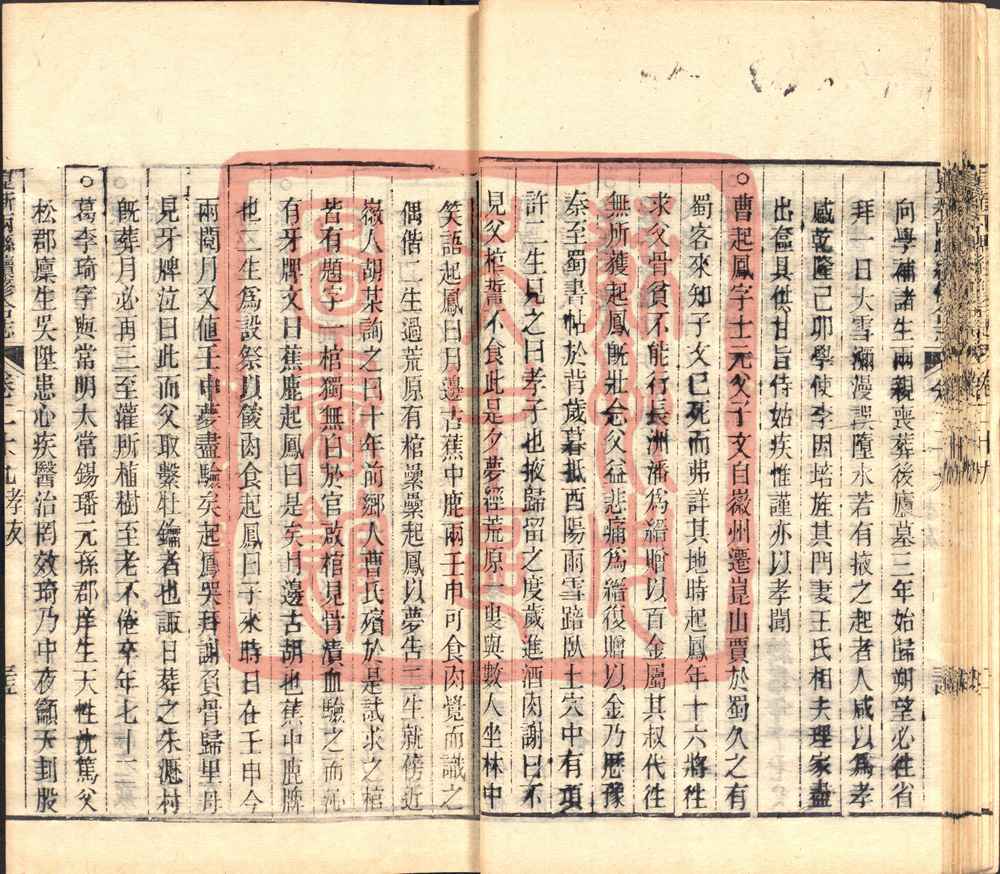 向學補諸生兩親喪葬後廬墓三年始歸朔望必往省
拜一日大雪瀰漫誤墮水若有掖之起者人咸以為孝
感乾隆己卯學使李因培旌其門妻王氏相夫理家盡
出奩具供甘旨侍姑疾惟謹亦以孝聞
○曹起鳳字士元父子文自徽州遷崑山賈於蜀久之有
蜀客來知子文已死而弗詳其地時起鳳年十六將往
求父骨貧不能行長洲潘為縉贈以百金屬其叔代往
無所獲起鳳既壯念父益悲痛為縉復贈以金乃歷豫
秦至蜀書帖於背歲暮抵酉陽雨雪踣臥土穴中有項
許二生見之曰孝子也掖歸留之度歲進酒肉謝曰不
見父棺誓不食此是夕夢經荒原一叟與數人坐林中
笑語起鳳曰月邊古蕉中鹿兩壬申可食肉覺而識之
偶偕二生過荒原有棺纍纍起鳳以夢告二生就傍近
徽人胡某詢之曰十年前鄉人曹氏殯於是試求之棺
皆有題字一棺獨無白於官啟棺見骨漬血驗之而沁
有牙牌文曰蕉鹿起鳳曰是矣月邊古胡也蕉中鹿牌
也二生為設祭以餕肉食起鳳曰子來時日在壬申今
兩閱月又值壬申夢盡驗矣起鳳哭拜謝負骨歸里母
見牙牌泣曰此而父取繫牡鑰者也諏日葬之朱瀝村
既葬月必再三至藩所植樹至老不倦卒年七十二
○葛李琦字與常明太常錫璠元孫郡庠生大性忱篤父
松郡廩生吳陞患心疾醫治罔效琦乃中夜籲天封股